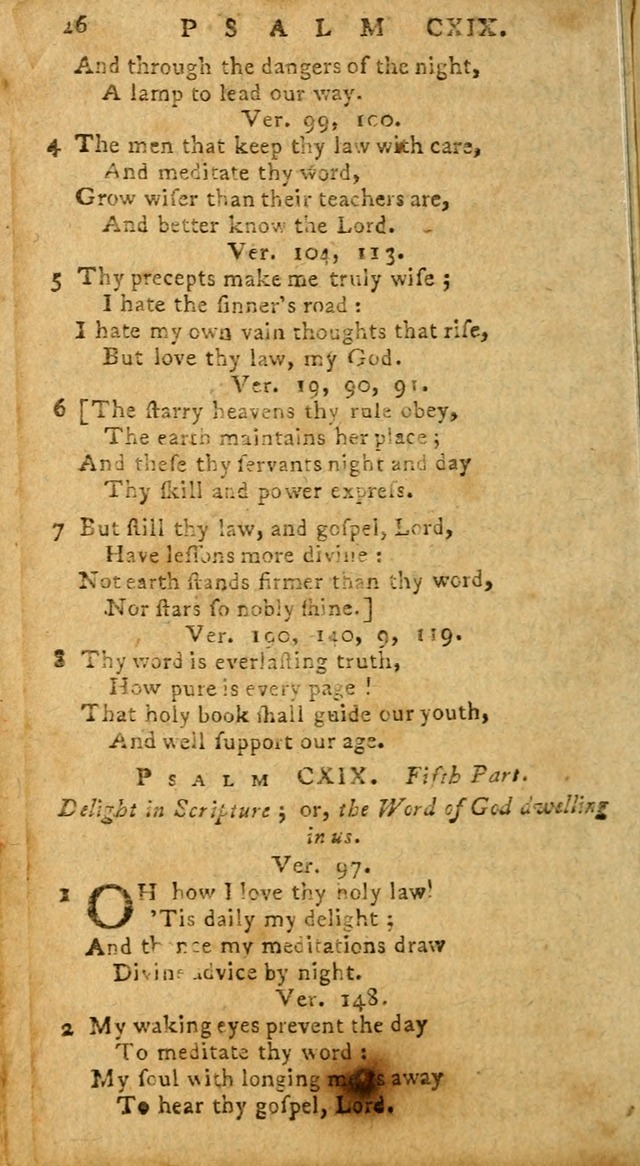 26 PSALM CXIX.
And through the dangers of the night,
A lamp to lead our way.
Ver. 99, 100.
4 The men that keep thy law with care,
And meditate thy word,
Grow wiſer than their teachers are,
And better know the Lord.
Ver. 104, 113.
5 Thy precepts make me truly wiſe ;
I hate the ſinner's road :
I hate my own vain thoughts that riſe,
But love thy law, my God.
Ver. 19, 90, 91.
6 [The ſtarry heavens thy rule obey,
The earth maintains her place ;
And theſe thy ſervants night and day
Thy ſkill and power expreſs.
7 But ſtill thy law, and goſpel, Lord,
Have leſſons more divine :
Not earth ſtands firmer than thy word,
Nor ſtars ſo nobly ſhine.]
Ver. 140, 9, 119.
8 Thy word is everlaſting truth,
How pure is every page !
That holy book ſhall guide our youth,
And well ſupport our age.
PSALM CXIX. Fifth Part.
Delight in Scripture ; or, the Word of God dwelling
in us.
Ver. 97.
1 OH how I love thy holy law!
'Tis daily my delight ;
And thence my meditations draw
Divine advice by night.
Ver. 148.
2 My waking eyes prevent the day
To meditate thy word :
My ſoul with longing away
To hear thy goſpel, Lord.